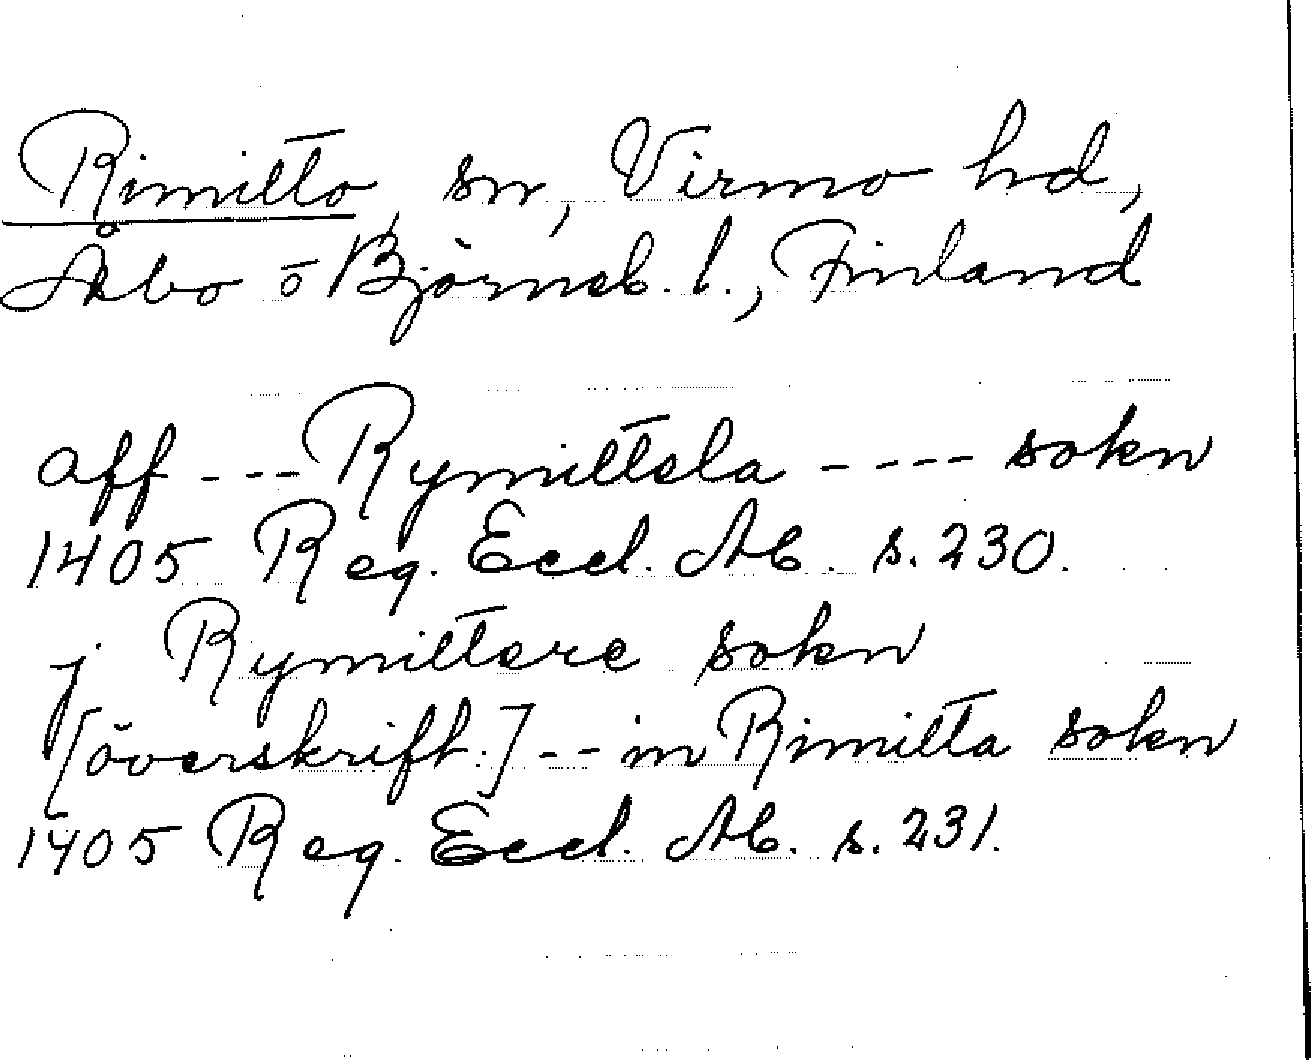 Rimitto, sn, Virmo hd,
Åbo ö Björneb. l., Finland
aff --- Rymittela ---- sokn
1405 Reg. Eccl. Ab. s. 230.
j Rymittere sokn
[överskrift.] -- in Rimitta sokn
1405 Reg. Eccl. Ab. s. 231.